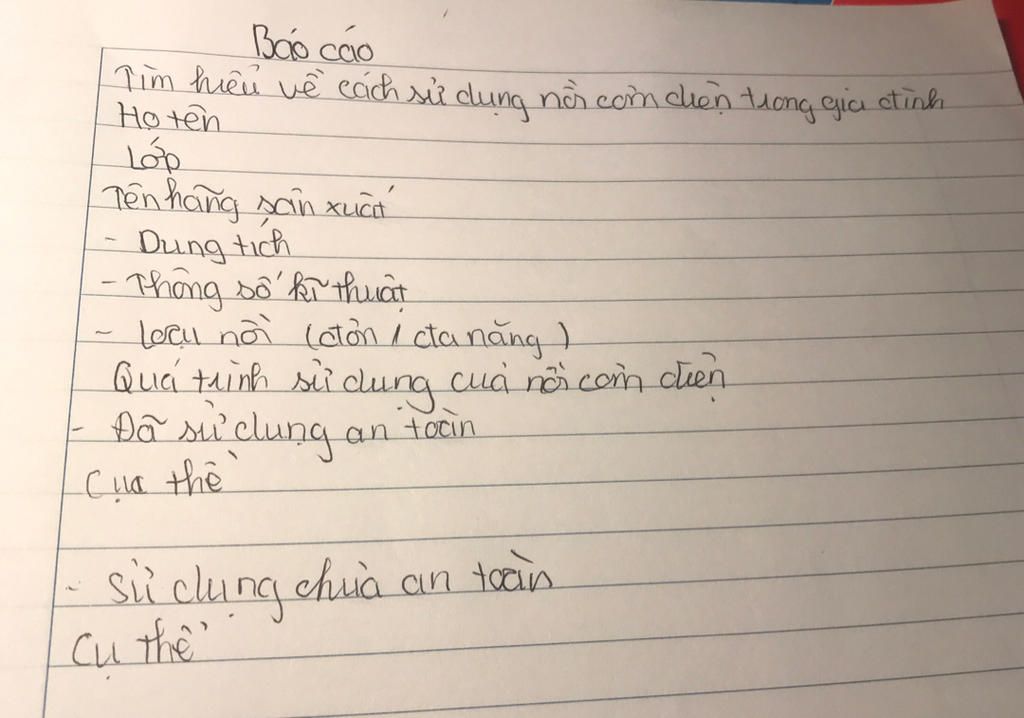 Báo cáo
Tìm hiểu về cách sử dụng nồi cơm điện trong gia đình
Họ tên
Lớp
Tên hãng sản xuất
- Dung tích
- Thông số kĩ thuật
- Loại nồi (đơn / đa năng)
Quá trình sử dụng của nồi cơm điện
- Đã sử dụng an toàn
Cụ thể
- Sử dụng chưa an toàn
Cụ thể